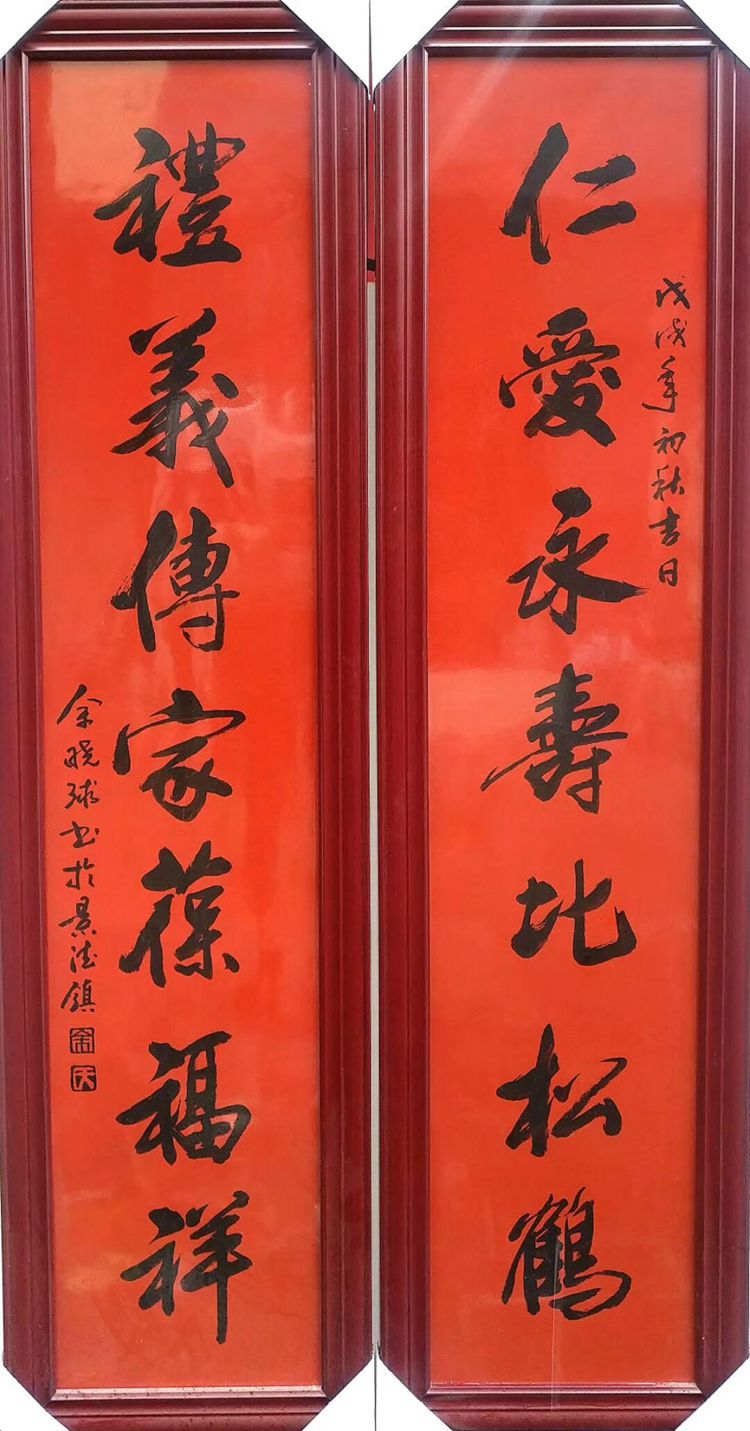 仁愛永壽比松鶴
戊戌年初秋吉日
禮義傳家葆福祥
余晓球书於景德鎮
余